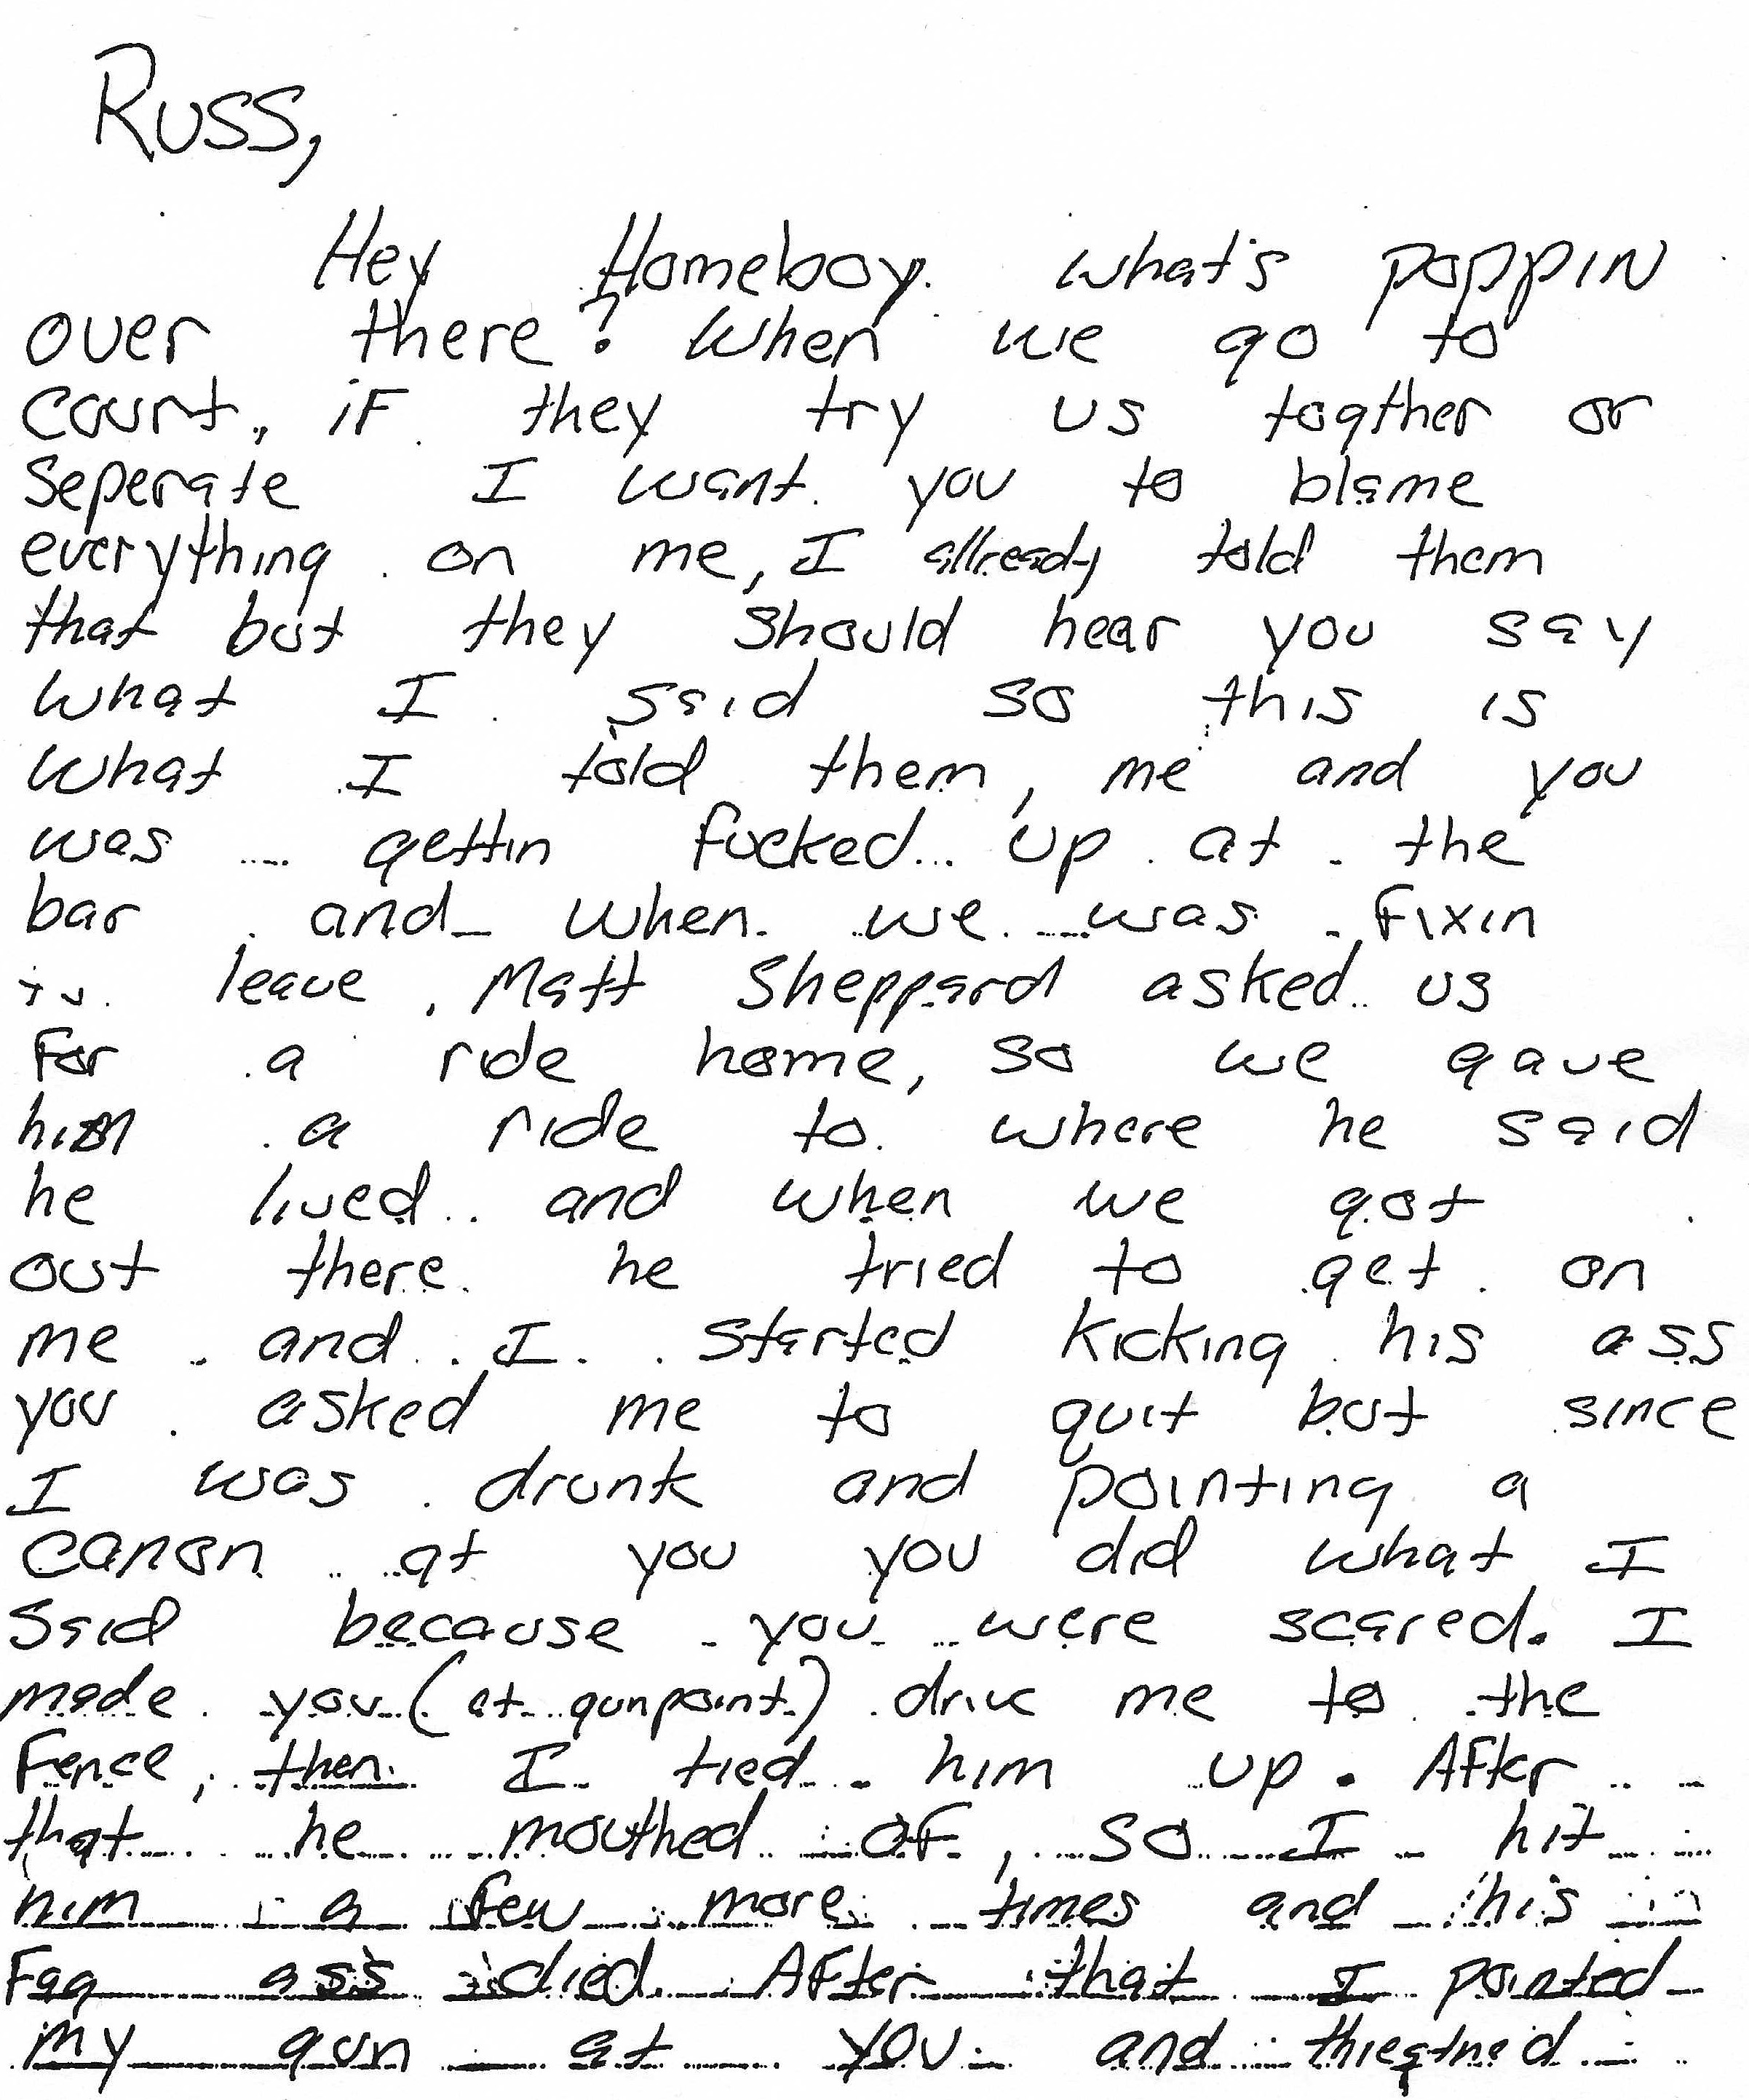 Russ,
Hey Homeboy. what's poppin
over there? When we go to
court, iF they try us togther or
Seperate I want you to blame
everything on me, I allready told them
that but they should hear you say
What I said so this is
What I told them, me and you
was gettin fucked up at the
bar and when we was Fixin
to leave, Matt Sheppard asked us
For a ride home, so we gave
him a ride to where he said
he lived and when we got
out there he tried to get on
me and I started kicking his ass
you asked me to quit but since
I was drunk and pointing a
canon at you you did what I
Said because you were scared. I
made you (at gunpoint) drive me to the
Fence, then I tied him up. AFter
that he mouthed oF, so I hit
him a few more times and his
Fag ass died. AFter that I pointed
my gun at you and threatned